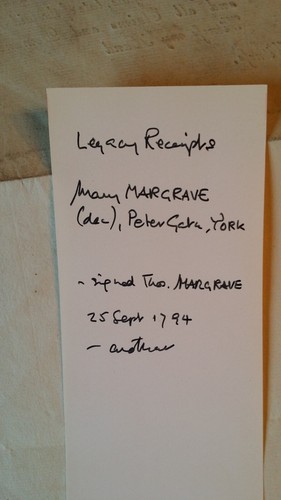 Legacy Receipts
Mary MARGRAVE
(dec), Peter Gate, YORK
- signed Thos. MARGRAVE
25 Sept 1794
- another